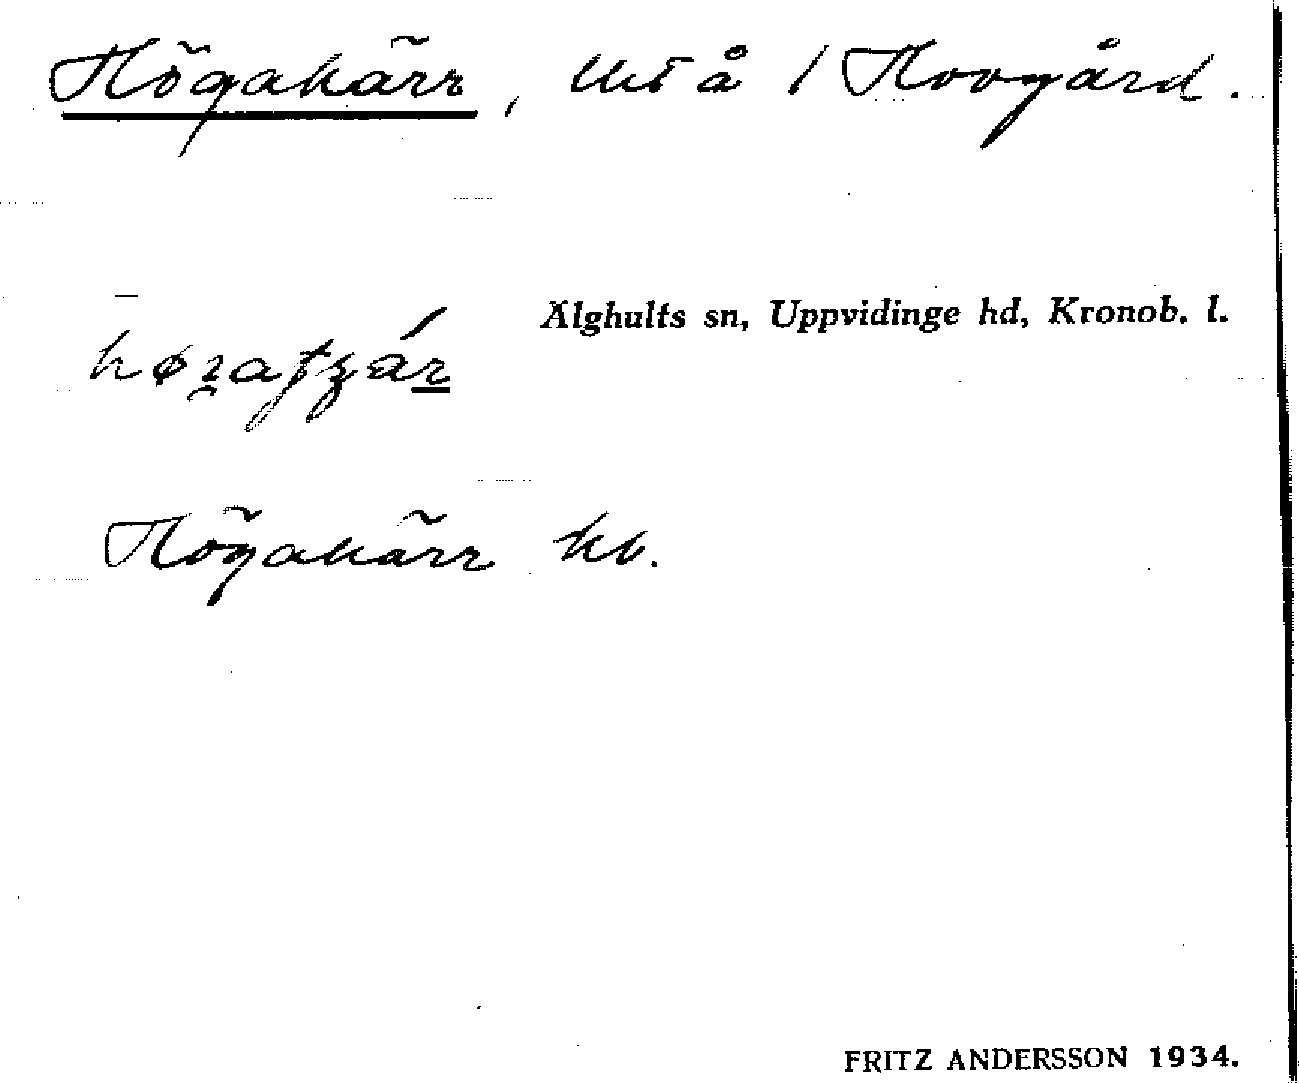 Högakärr, / Hovgård.
Älghults sn, Uppvidinge hd, Kronob. l.
Högakärr kb.
FRITZ ANDERSSON 1934.